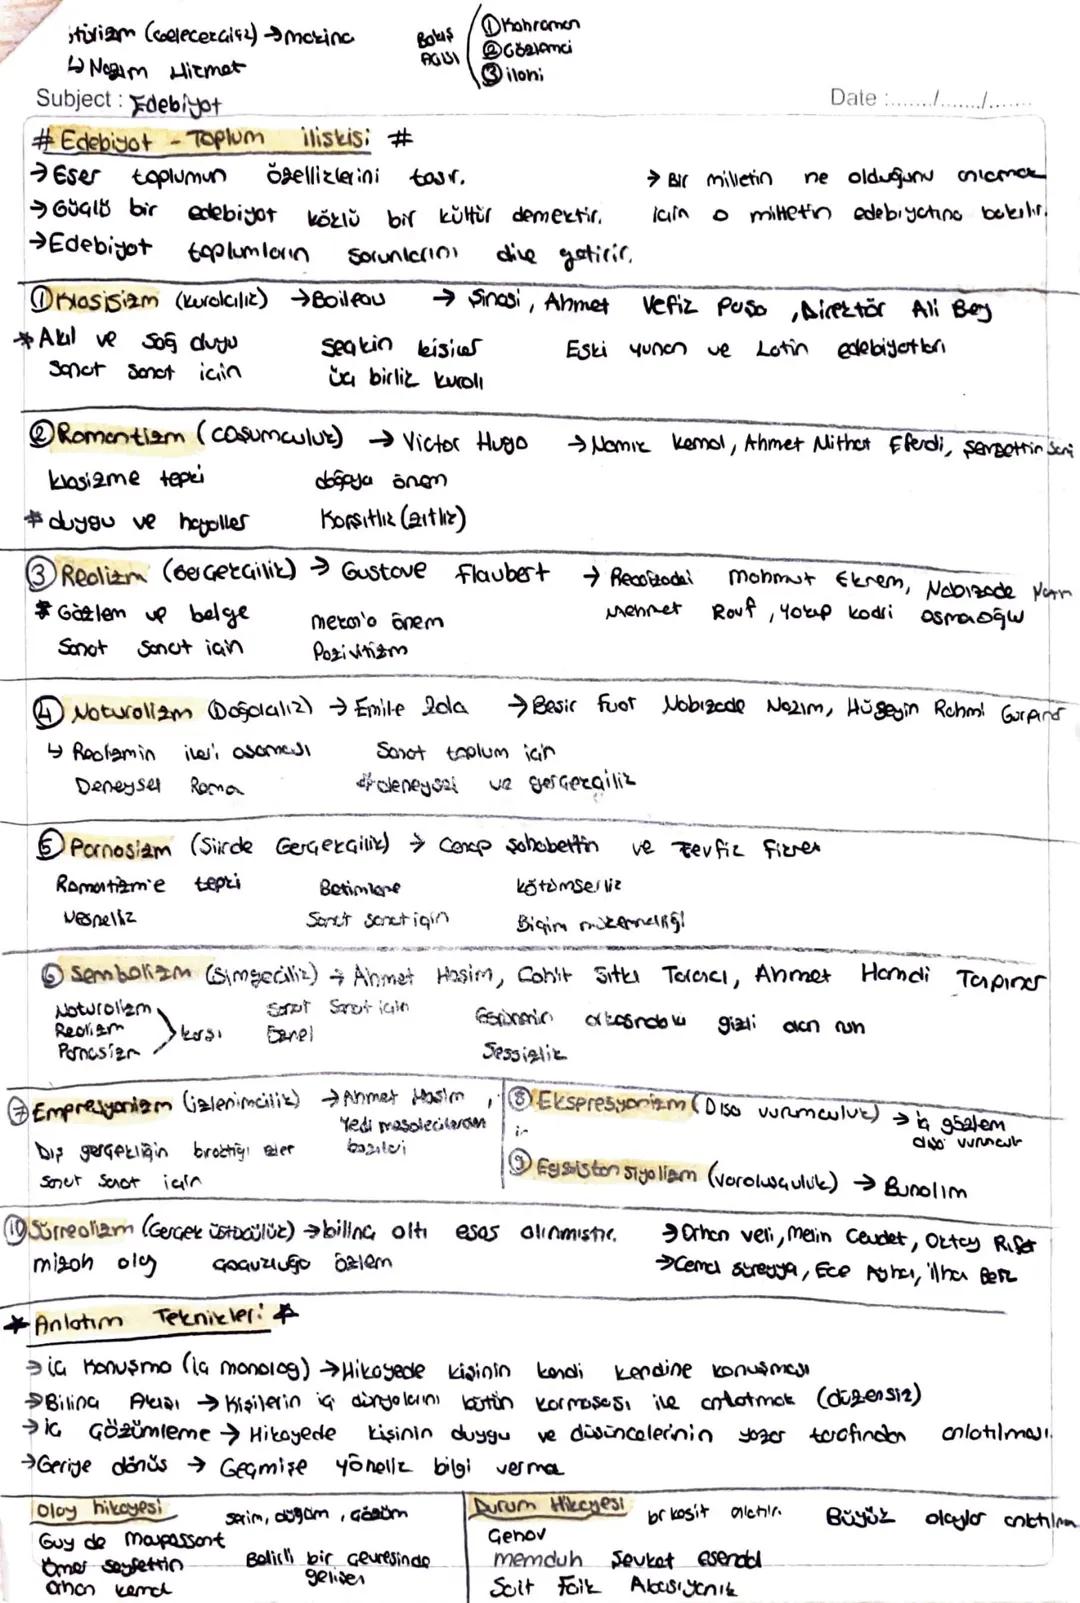 (Gelecekçilik) → makina
↳ Nazım Hikmet
Bakış Açısı
① Kahraman
② Gözlemci
③ ilahi
Subject : Edebiyat
Date :......../......../........
# Edebiyat - Toplum ilişkisi #
→ Eser toplumun özelliklerini taşır.
→ Güçlü bir edebiyat köklü bir kültür demektir.
→ Edebiyat toplumların sorunlarını dile getirir.
→ Bir milletin ne olduğunu anlamak
için o milletin edebiyatına bakılır.
① Klasisizm (kuralcılık) → Boileau → Şinasi, Ahmet Vefik Paşa, Direktör Ali Bey
* Akıl ve sağ duyu seçkin kişiler Eski yunan ve Latin edebiyatları
Sanat sanat için üç birlik kuralı
② Romantizm (coşumculuk) → Victor Hugo → Namık Kemal, Ahmet Mithat Efendi, Şemsettin Sami
klasizme tepki doğaya önem
* duygu ve hayaller Karşıtlık (zıtlık)
③ Realizm (Gerçekçilik) → Gustave Flaubert → Recaizade Mahmut Ekrem, Nabizade Nazım
* Gözlem ve belge mekan'a önem Mehmet Rauf, Yakup Kadri Osmaoğlu
Sanat Sanat için Pozivitizm
④ Naturalizm (Doğalcılık) → Emile Zola → Beşir Fuat Nabizade Nazım, Hüseyin Rahmi Gürpınar
↳ Realizmin ileri aşaması Sanat toplum için
Deneysel Roma # deneysel ve gerçekçilik
⑤ Parnasizm (Şiirde Gerçekçilik) → Cenap Şahabettin ve Tevfik Fikret
Romantizm'e tepki Betimleme kötümserlik
Nesnellik Sanat sanat için Biçim mükemmelliği
⑥ Sembolizm (Simgecilik) → Ahmet Haşim, Cahit Sıtkı Tarancı, Ahmet Hamdi Tanpınar
Naturalizm Realizm Parnasizm karşı
Sanat Sanat için arkasındaki gizli olan ruh
Sessizlik
⑦ Empresyonizm (izlenimcilik) → Ahmet Haşim,
Yedi meşalecilerden bazıları
Dış gerçekliğin bıraktığı izler
Sanat Sanat için
⑧ Ekspresyonizm (Dışa vurumculuk) → iç gözlem
dışa vurumculuk
⑨ (varoluşçuluk) → Bunalım
⑩ Sürrealizm (Gerçek üstücülük) → bilinç altı esas alınmıştır. → Orhan Veli, Melih Cevdet, Oktay Rifat
mizah olay çocukluğa özlem → Cemal Süreyya, Ece Ayhan, İlhan Berk
* Anlatım Teknikleri *
→ iç Konuşma (iç monolog) → Hikayede kişinin kendi kendine konuşması
→ Bilinç Akışı → Kişilerin iç dünyalarını bütün karmaşası ile anlatmak (düzensiz)
→ iç Çözümleme → Hikayede kişinin duygu ve düşüncelerinin yazar tarafından anlatılması.
→ Geriye dönüş → Geçmişe yönelik bilgi verme
Olay hikayesi serim, düğüm, çözüm
Guy de Maupassant
Ömer Seyfettin Belirli bir çevresinde gelişen
Orhan Kemal
Durum Hikayesi bir kesit anlatılır. Büyük olaylar anlatılmaz
Çehov
memduh Şevket esendal
Sait Faik Abasıyanık